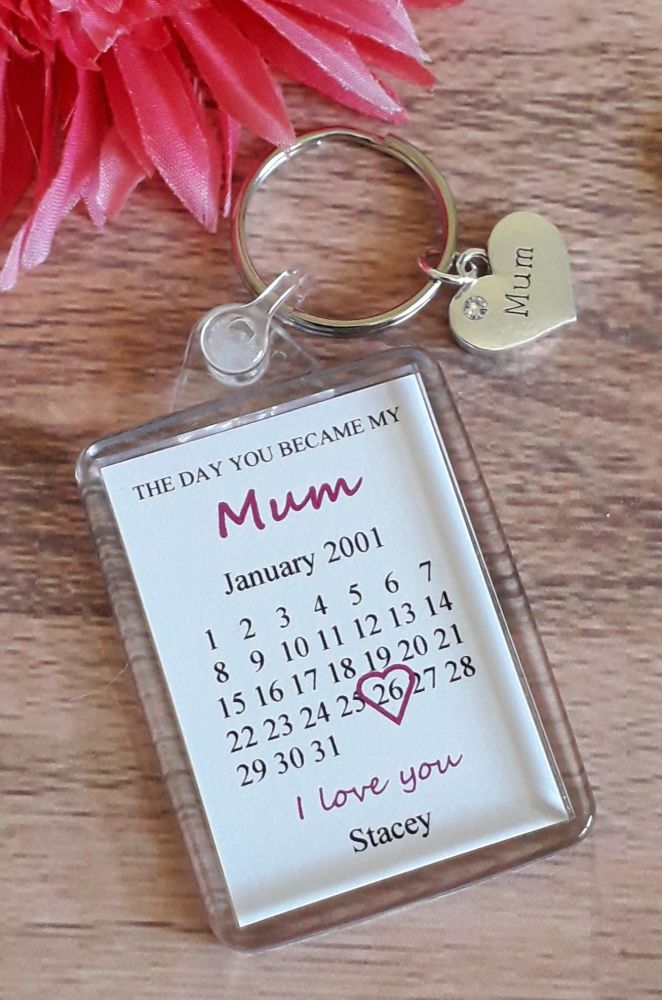 Mum
THE DAY YOU BECAME MY
Mum
January 2001
1 2 3 4 5 6 7
8 9 10 11 12 13 14
15 16 17 18 19 20 21
22 23 24 25 26 27 28
29 30 31
I love you
Stacey